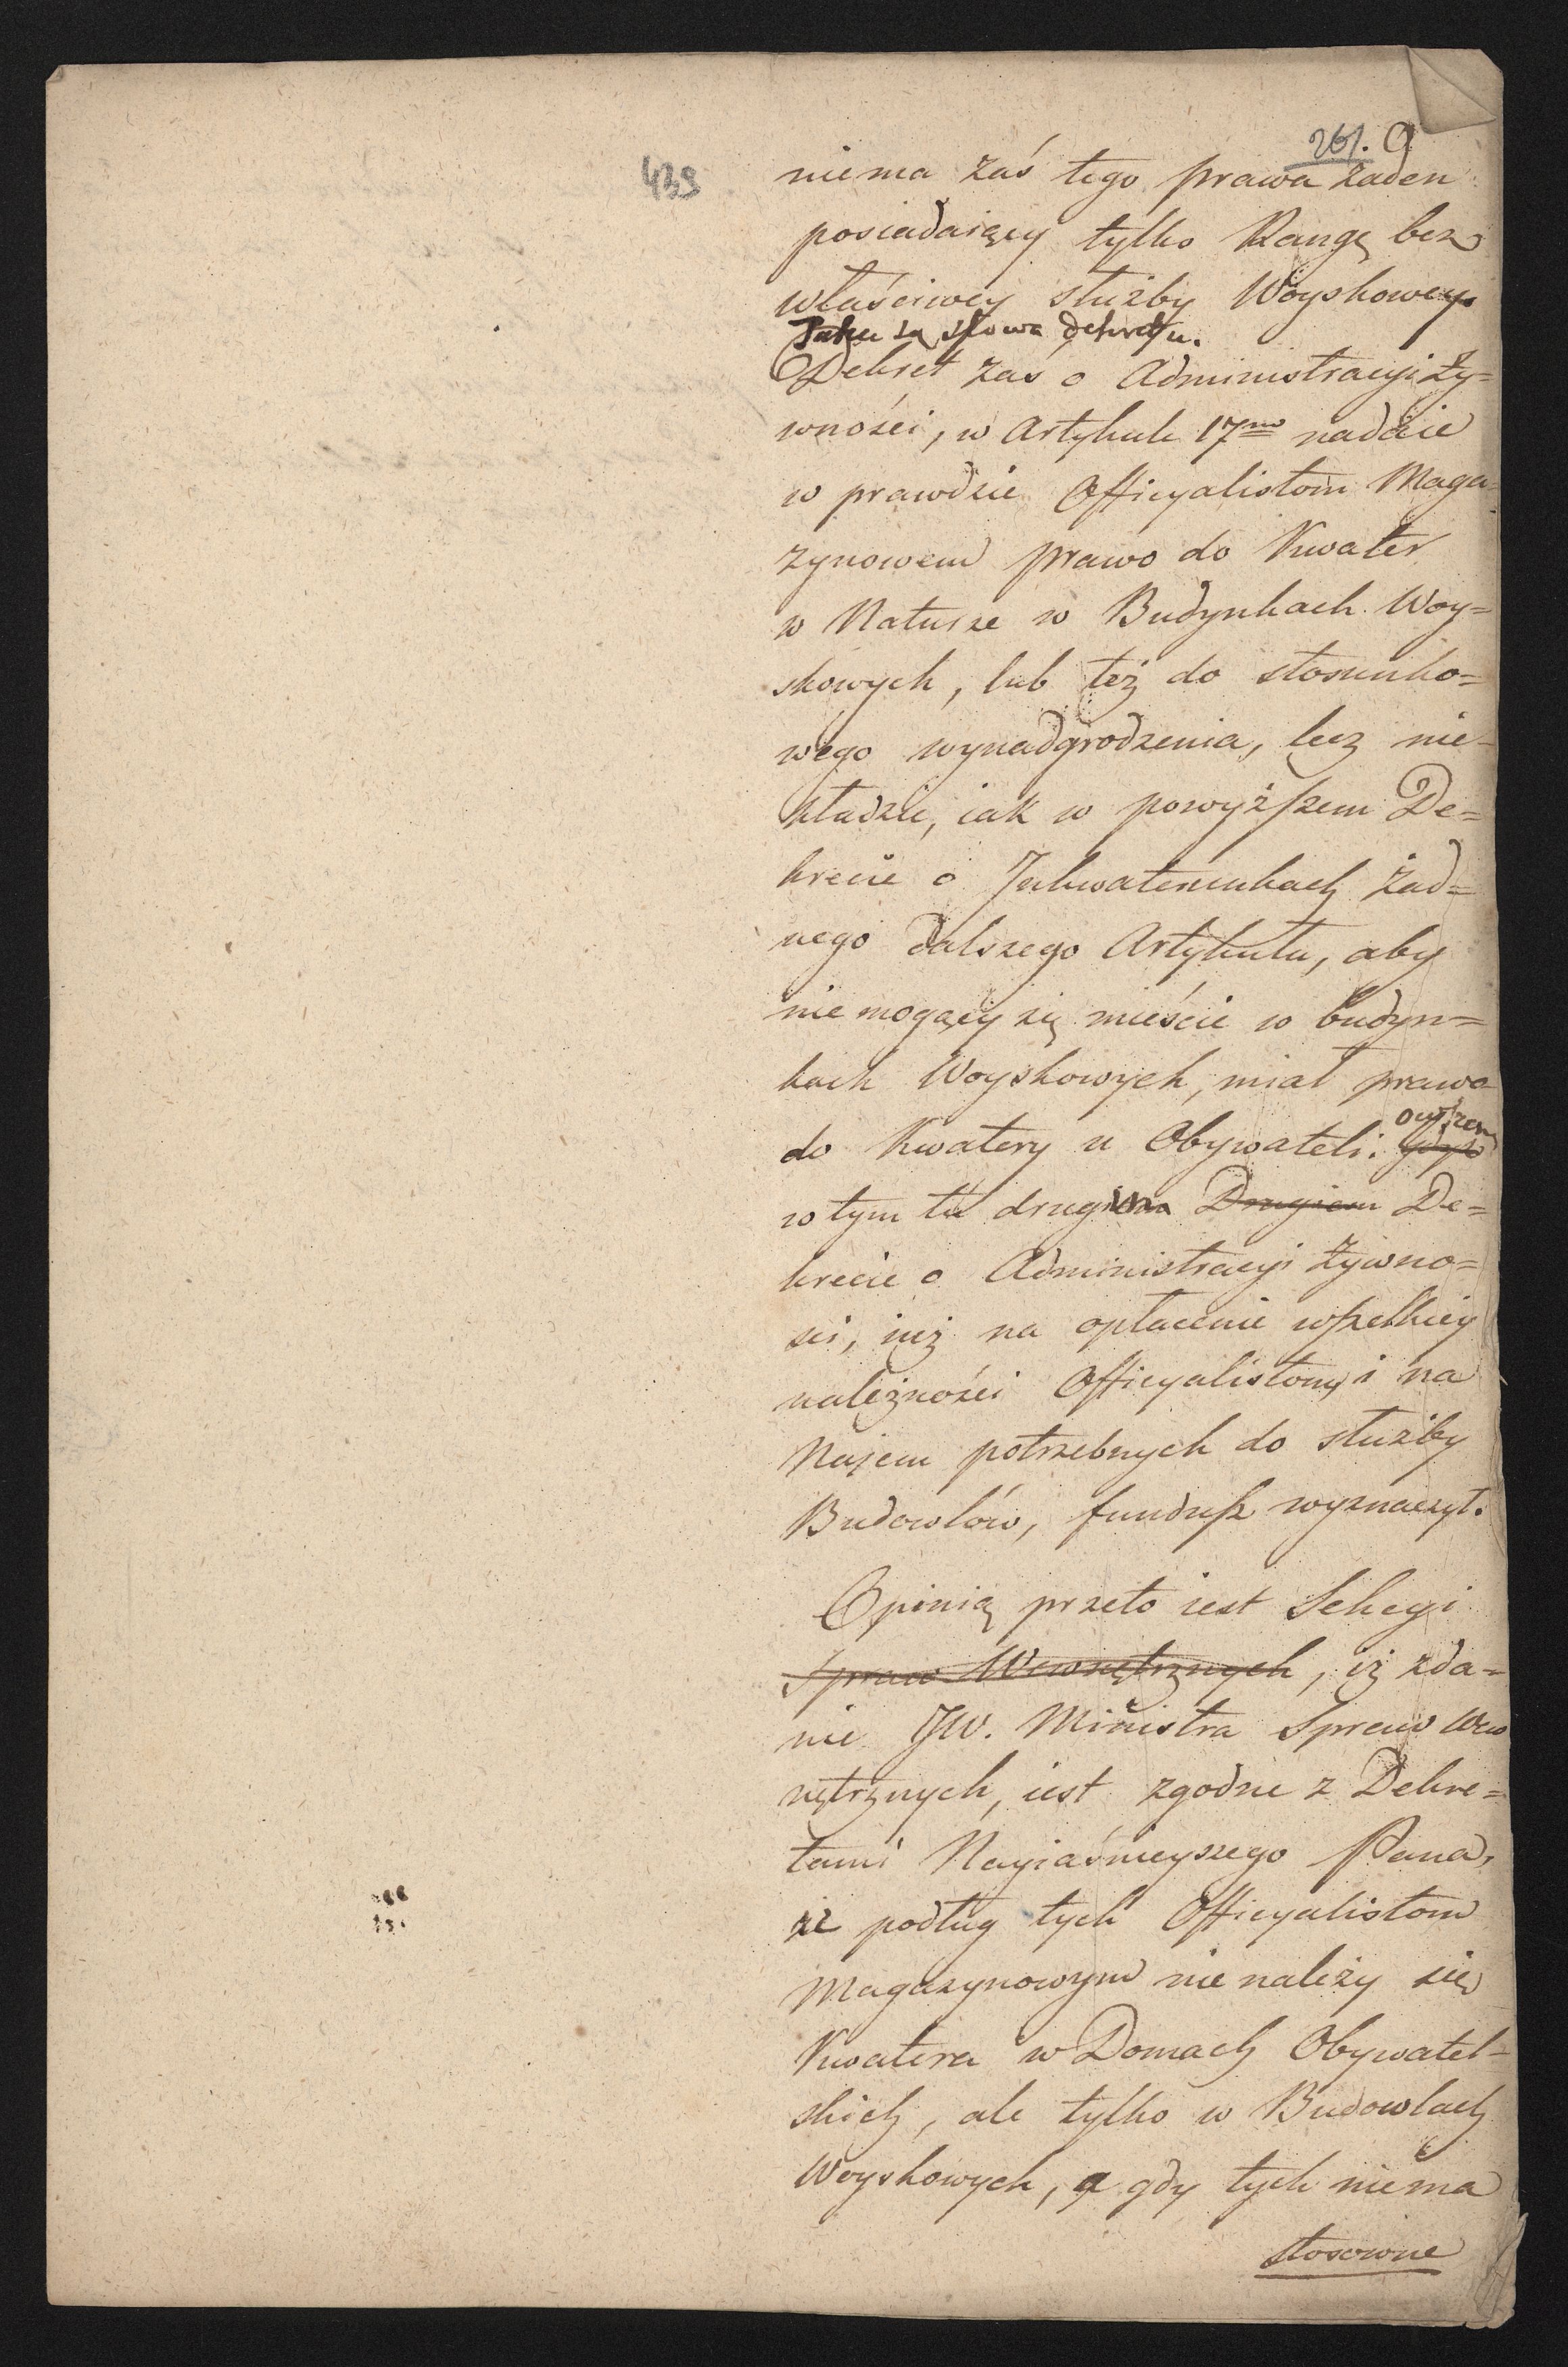 261. 9
439
niema zaś tego prawa żaden
posiadaiący tylko Rangę bez
właściwey służby Woyskowey.
Takie są słowa dekretu.
Dekret zaś o Administracyi Ży=
wności, w Artykule 17mo nadaie
w prawdzie Officyalistom Maga=
zynowem prawo do Kwater
w Naturze w Budynkach Woy=
skowych, lub też do stosunko=
wego wynadgrodzenia, lecz nie
kładzie, iak w powyższem De=
krecie o Inkwaterunkach żad=
nego dalszego Artykułu, aby
nie mogący się mieścić w budyn=
kach Woyskowych, miał prawo
do Kwatery u Obywateli. owszem
gdyż
w tym tu drugim Drugiem De=
krecie o Administracyi Żywno=
ści, iuż na opłacenie wszelkiey
należności Officyalistom, i na
Najem potrzebnych do służby
Budowlów, fundusz wyznaczył.
Opinią przeto iest Sekcyi
Spraw Wewnętrznych, iż zda=
nie JW. Ministra Spraw Wew
nętrznych, iest zgodne z Dekre=
tami Nayiaśnieyszego Pana,
że podług tych Officyalistom
Magazynowym nie należy się
Kwatera w Domach Obywatel=
skich, ale tylko w Budowlach
Woyskowych, a gdy tych niema
stosowne